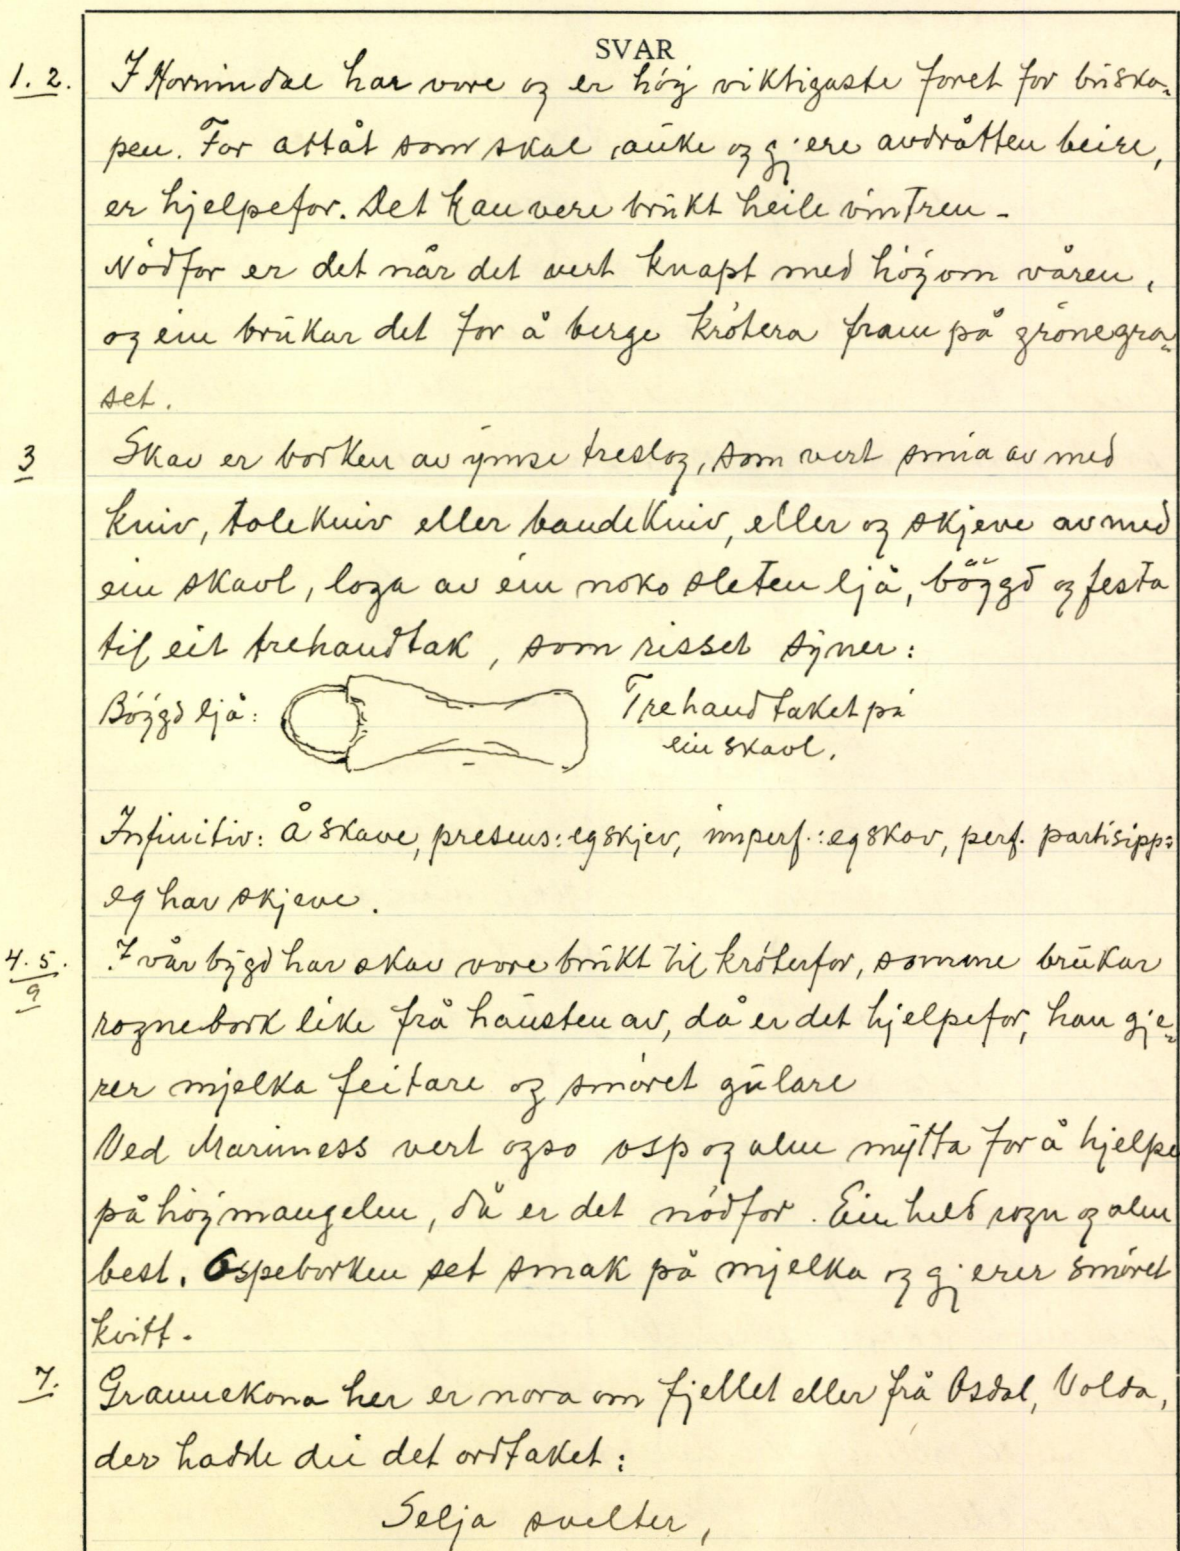 SVAR
1. 2. I Hornindal har vore og er høy viktigaste foret for buska-
pen. For attåt som skal auke og gjere avdråtten beire,
er hjelpefor. Det kan vere brukt heile vintren.
Nödfor er det når det vert knapt med höy om våren,
og ein brukar det for å berge krötera fram på grönegra-
set.
3 Skav er borken av ymse treslog, som vert smia av med
kniv, tolekniv eller bandekniv, eller og skjeve av med
ein skavl, loga av ein noko sleten ljå, böygd og festa
til eit trehandtak, som risset syner:
Böygd ljå: Trehandtaket på
ein skavl.
Infinitiv: Å skave, presens: eg skjev, imperf.: eg skov, perf. partisipp:
eg har skjeve.
4. 5. I vår bygd har skav vore brukt til kröterfor, somme brukar
9 rognebork like frå hausten av, då er det hjelpefor, han gje-
rer mjelka feitare og smöret gulare
Ved Marimess vert ogso osp og alm nytta for å hjelpe
på höymangelen, då er det nödfor. Ein held rogn og alm
best. Ospeborken set smak på mjelka og gjerer smöret
kvitt.
7. Grannekona her er nora om fjellet eller frå Osdal, Volda,
der hadde dei det ordtaket:
Selja svelter,